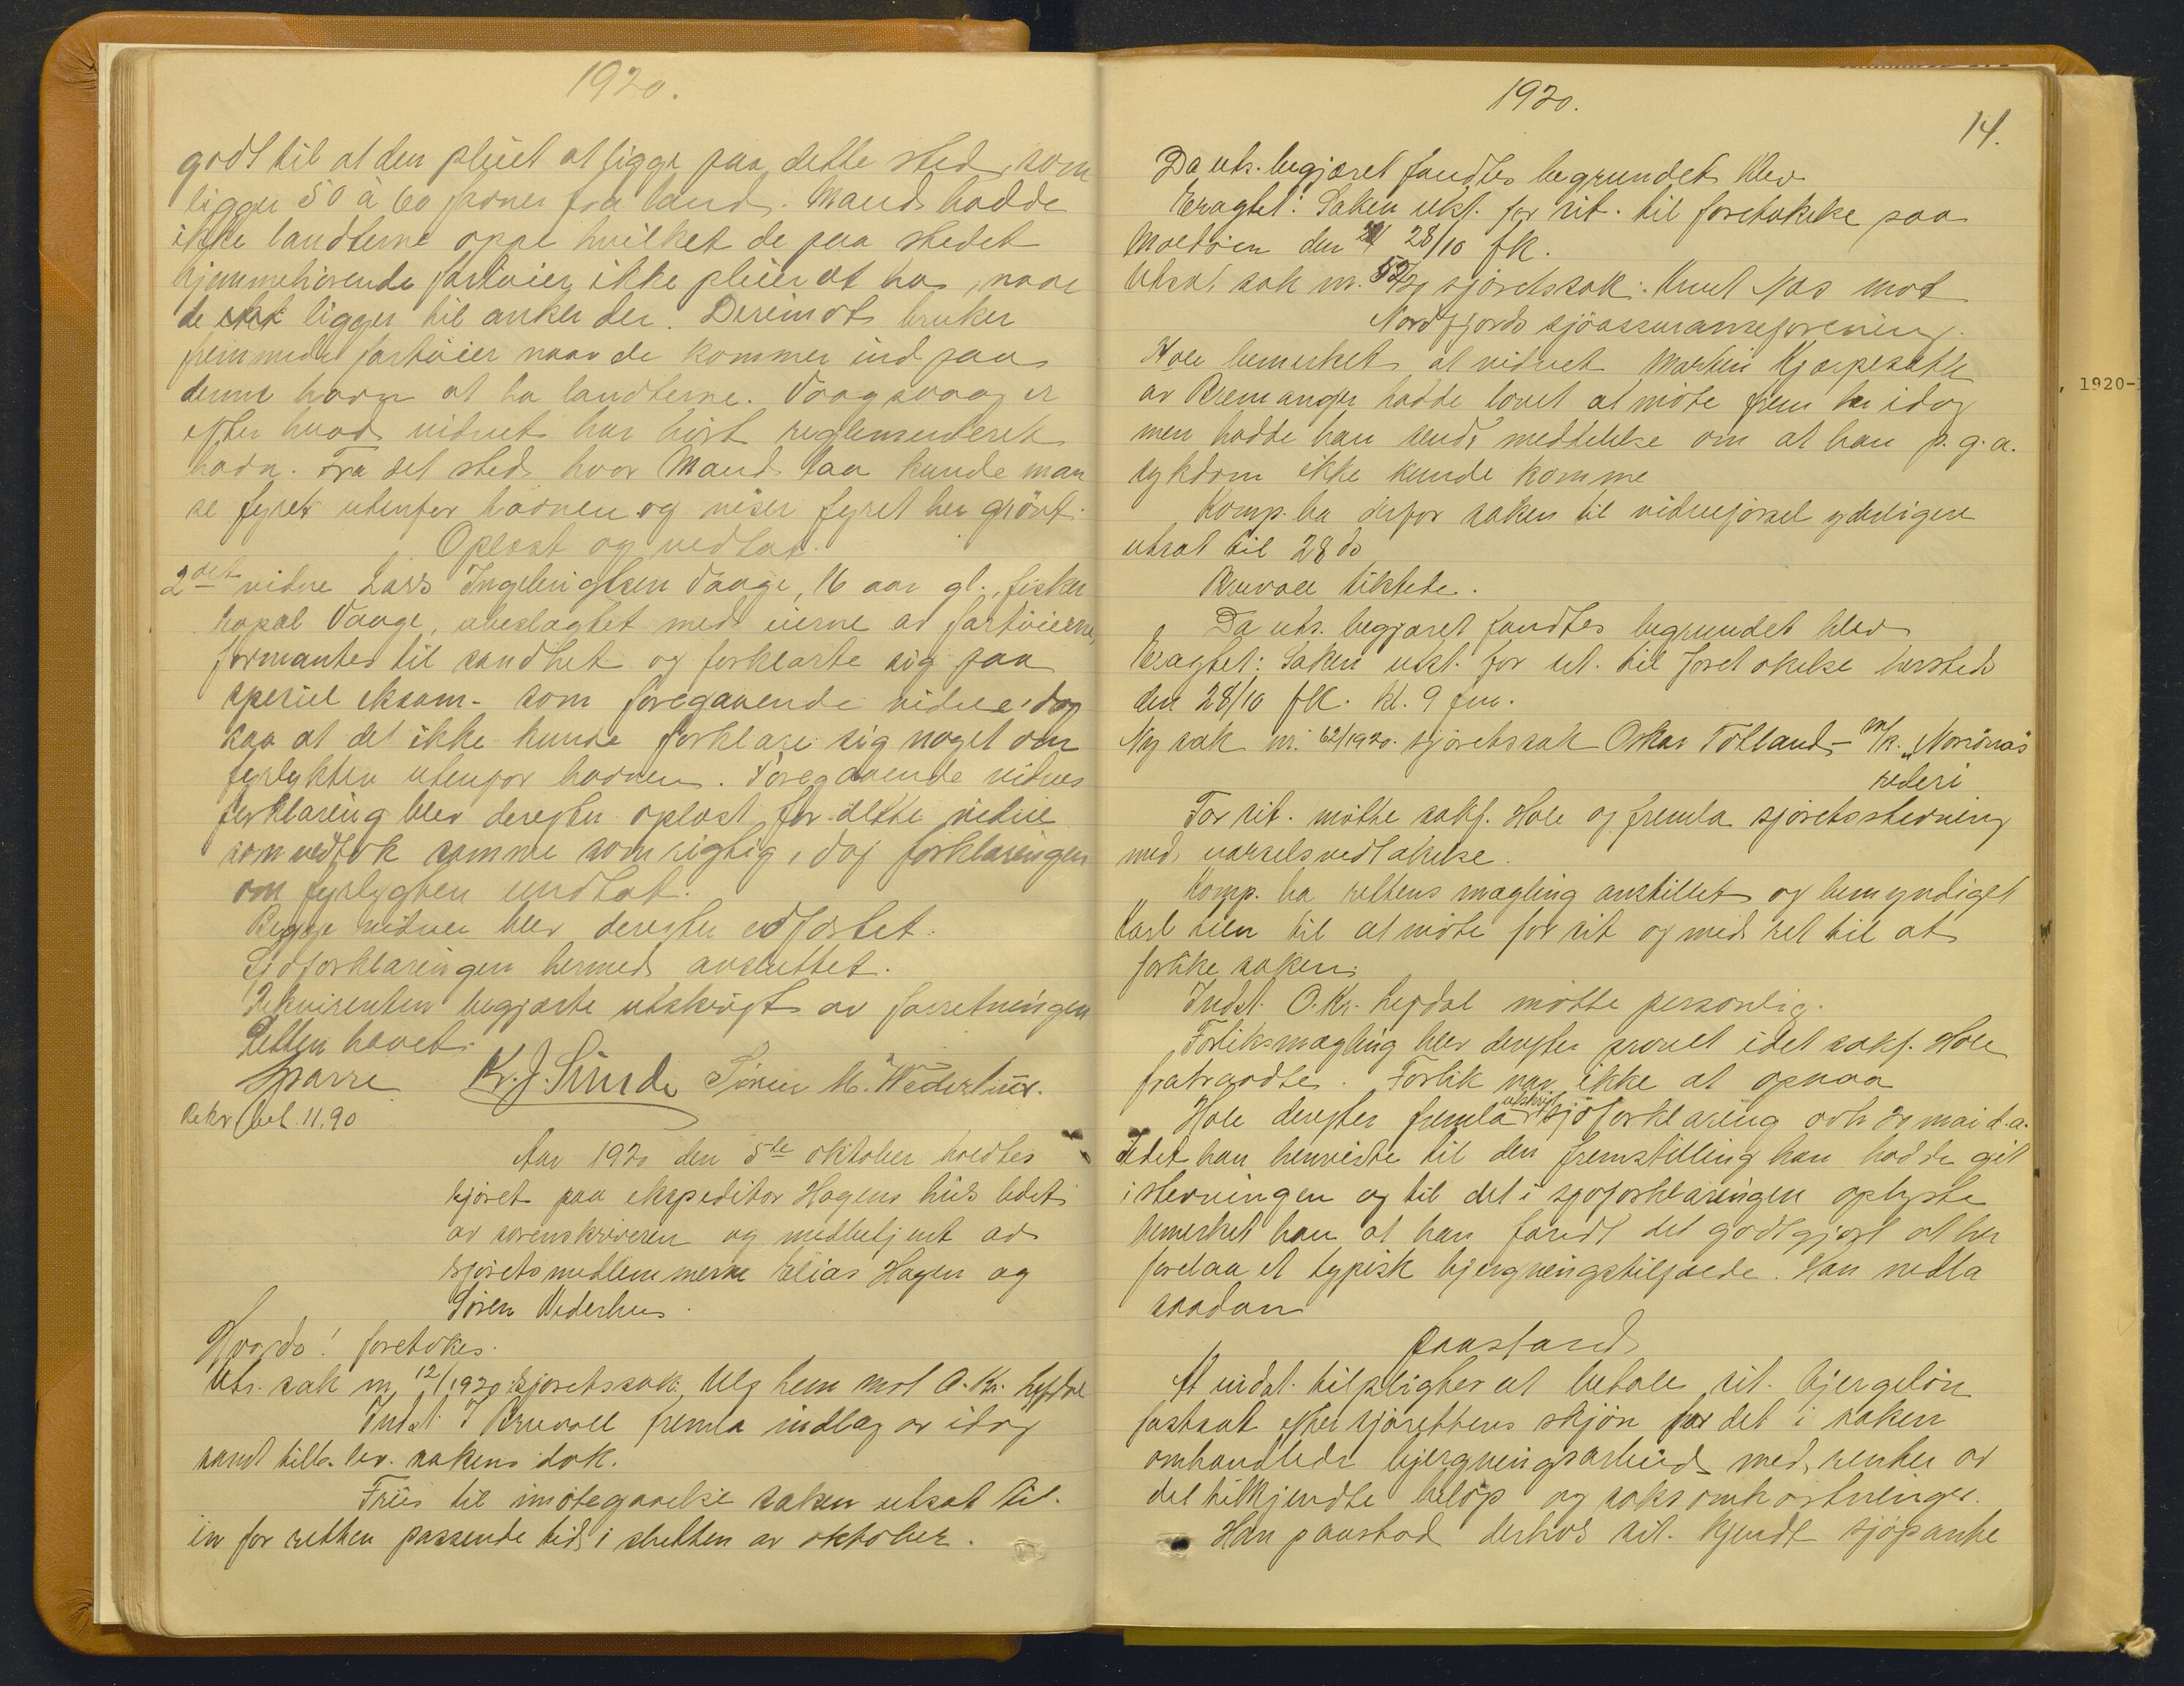 1920.
godt til at den pleiet at ligge paa dette sted, som
ligger 50 à 60 favner fra land. Maud hadde
ikke landterne oppe hvilket de paa stedet
hjemmehörende fartöier ikke pleier at ha, naar
de ligger til anker der. Derimot bruker
fremmede fartöier naar de kommer ind paa
denne havn at ha landterne. Vaagsvaag er
efter hvad vidnet har hört reglementeret
havn. Fra det sted hvor Maud laa kunde man
se fyret utenfor havnen og viser fyret her grönt.
Oplæst og vedtat.
2det vidne Lars Ingebrigtsen Vaage, 16 aar gl., fisker
bopæl Vaage, ubeslægtet med eierne av fartöierne,
formantes til sandhet og forklarte sig paa
speciel eksam. som foregaaende vidne, dog
saa at det ikke kunde forklare sig noget om
fyrlykten utenfor havnen. Foregaaende vidnes
forklaring blev derefter oplæst for dette vidne
som vedtok samme som rigtig, dog forklaringen
om fyrlygten undtat.
Begge vidner blev derefter edfæstet.
Sjöforklaringen hermed avsluttet.
Rekvirenten begjærte utskrift av forretningen
Retten hævet.
Sparre Kr. J. Sunde Sören M. Wederhus.
Rekv. bet. 11.90
Aar 1920 den 5te oktober holdtes
sjöret paa ekspeditör Hagens hus ledet
av sorenskriveren og medbetjent av
sjöretsmedlemmerne Elias Hagen og
Sören Vederhus.
Hvorda! foretokes.
Uts. sak nr. 12/1920 sjöretssak, mot O. Kr. Lefdal
Indst. I Bruvoll fremla indlæg av idag
samt tilb. lev. sakens dok.
Friis til imötegaaelse saken utsat til
en for retten passende tid i slutten av oktober.
1920.
14.
Da uts. begjæret fandtes begrundet blev
Eragtet: Saken utst. for sit. til foretakelse paa
Moldöen den 28/10 fk.
Utsat sak nr. 52/20 sjöretssak: Knut Nos mot
Nordfjords sjöassuranseforening.
Hole bemerket at vidnet Martin Kjerpesæth
av Bremanger hadde lovet at möte frem her idag
men hadde han sendt meddelelse om at han p.g.a.
sykdom ikke kunde komme
Komp. ba derfor saken til vidneförsel yderligere
utsat til 28 ds
Bruvoll tilstede.
Da uts. begjæret fandtes begrundet blev
Eragtet: Saken utst. for sit. til foretakelse hersteds
den 28/10 fk. kl. 9 fm.
Ny sak nr. 62/1920. sjöretssak Oskar Totland – m/k. „Norönas
rederi
For sit. mötte sakf. Hole og fremla sjöretsstevning
med varselsvedtakelse.
Komp. ba rettens mægling anstillet og bemyndiget
til at möte for sit og med ret til at
forlike saken.
Indst. O. Kr. Lefdal mötte personlig.
Forliksmægling blev derefter prövet idet sakf. Hole
fratraadte. Forlik var ikke at opnaa
Hole derefter fremla utskrift sjöforklaring avh. 20 mai d.a.
Idet han henviste til den fremstilling han hadde git
i stevningen og til det i sjöforklaringen oplyste
bemerket han at han fandt det godtgjort at her
forelaa et typisk bjergningstilfælde. Han nedla
saadan
paastand
At indst. tilpligtes at betale sit. bjergelön
fastsat efter sjörettens skjön for det i saken
omhandlede bjergningsarbeid med renter av
det tilkjendte belöp og saksomkostninger.
Han paastod derhos sit. kjendt sjöpante
, 1920-